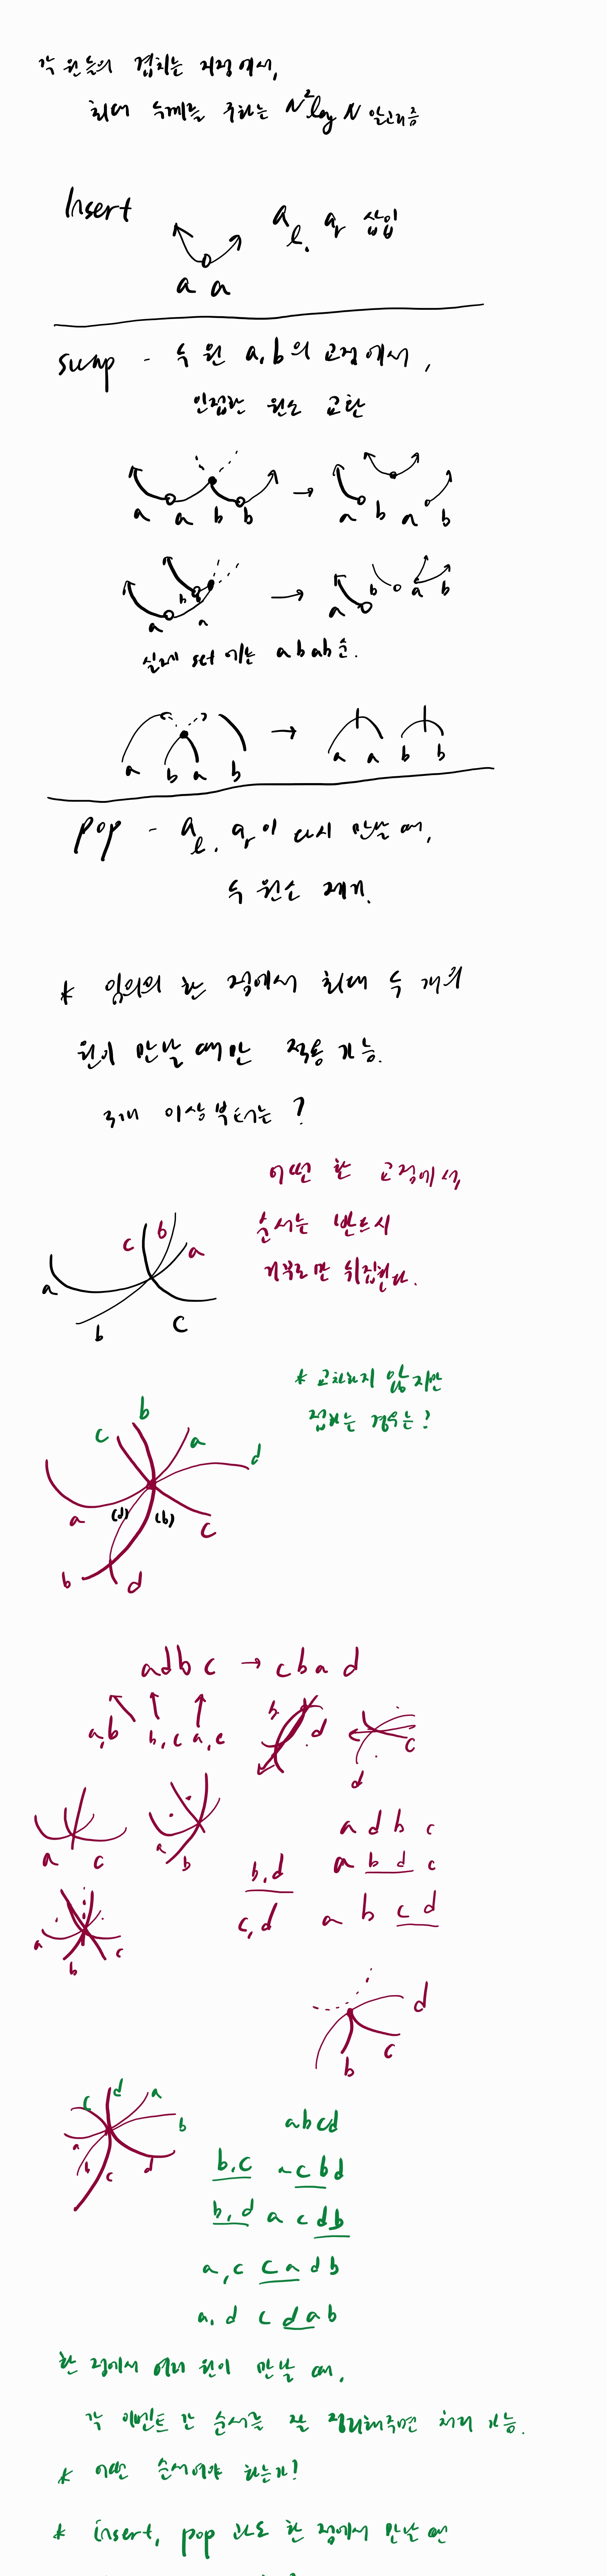 각 원들의 겹치는 지점에서,
최대 두께를 구하는 N²log N 알고리즘
Insert
a_l, a_r 삽입
a a
swap - 두 원 a, b의 교점에서,
인접한 원소 교환
a a b b → a b a b
a b a → a b a b
실제 set에는 a b a b 순.
a b a b → a a b b
pop - a_l, a_r이 다시 만날 때,
두 원소 제거.
* 임의의 한 점에서 최대 두 개의
원이 만날 때만 적용 가능.
3개 이상부터는?
어떤 한 교점에서,
순서는 반드시
거꾸로만 뒤집힌다.
c b a
a b c
* 교차하지 않지만
접하는 경우는?
b
c a d
a (d) (b) c
b d
adbc → cbad
a,b b,c a,c
b d
c
d
a c
a b
a d b c
b,d a b d c
c,d a b c d
a b c
d
c
b
c d a b
a b c d
abcd
b,c acbd
b,d a c d b
a,c c a d b
a,d c d a b
한 점에서 여러 원이 만날 때,
각 이벤트 간 순서를 잘 정리해주면 처리 가능.
* 어떤 순서여야 하는가?
* insert, pop 과도 한 점에서 만날 땐